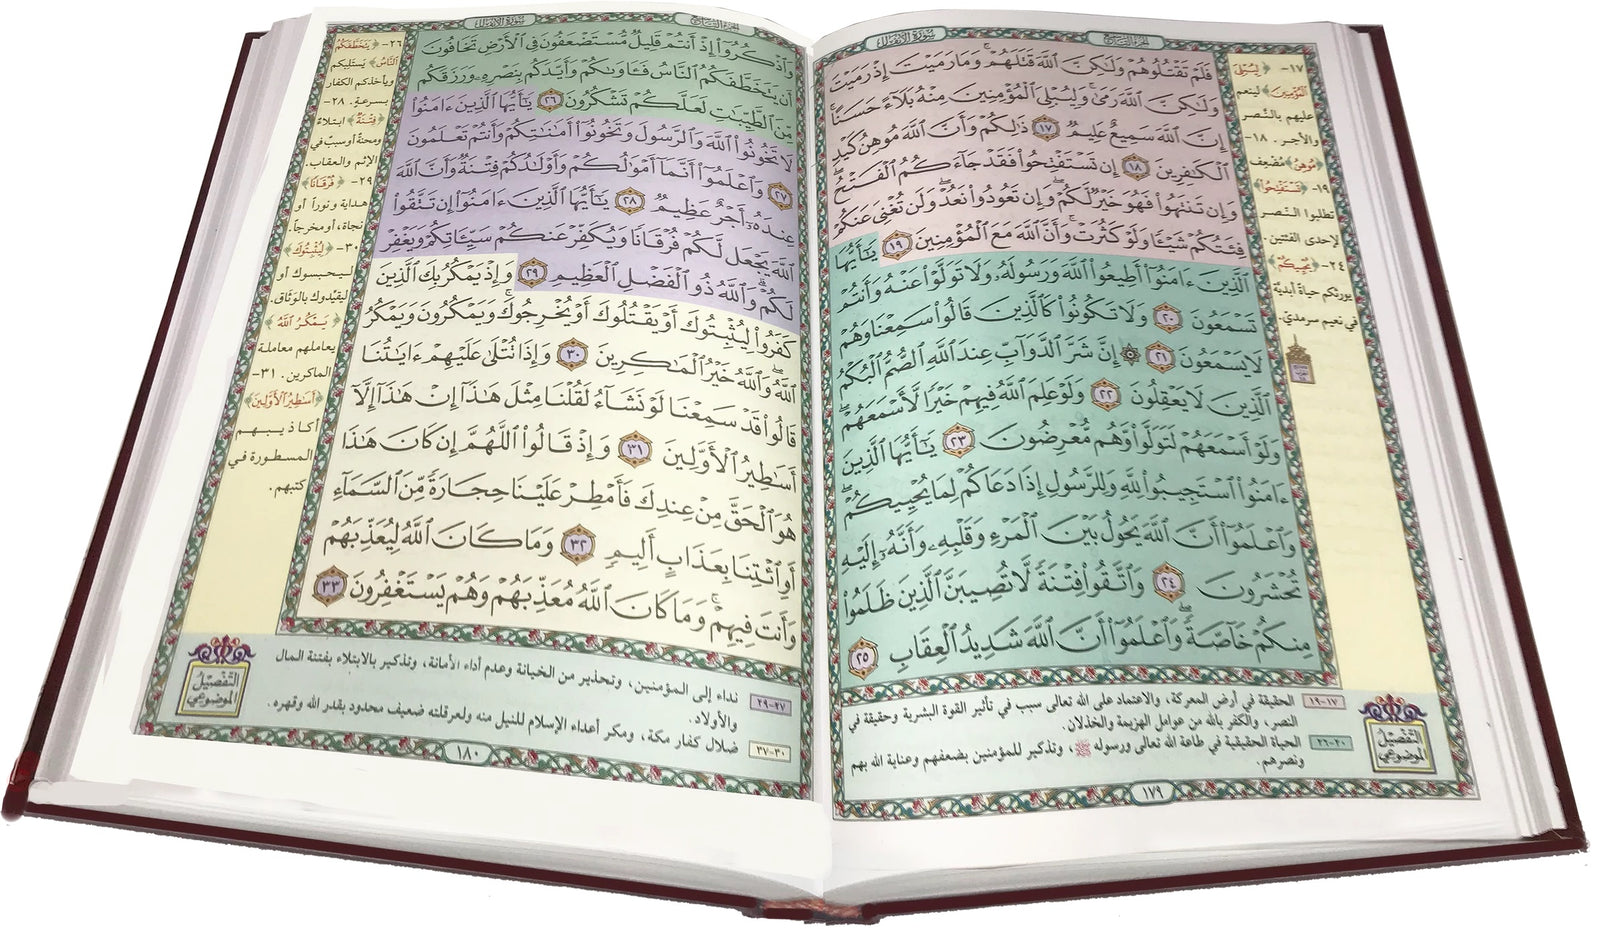 سورة الأنفال
الجزء التاسع
فَلَمْ تَقْتُلُوهُمْ وَلَٰكِنَّ ٱللَّهَ قَتَلَهُمْ ۚ وَمَا رَمَيْتَ إِذْ رَمَيْتَ
وَلَٰكِنَّ ٱللَّهَ رَمَىٰ ۚ وَلِيُبْلِىَ ٱلْمُؤْمِنِينَ مِنْهُ بَلَآءً حَسَنًا ۚ
إِنَّ ٱللَّهَ سَمِيعٌ عَلِيمٌ ١٧ ذَٰلِكُمْ وَأَنَّ ٱللَّهَ مُوهِنُ كَيْدِ
ٱلْكَٰفِرِينَ ١٨ إِن تَسْتَفْتِحُوا۟ فَقَدْ جَآءَكُمُ ٱلْفَتْحُ ۖ
وَإِن تَنتَهُوا۟ فَهُوَ خَيْرٌ لَّكُمْ ۖ وَإِن تَعُودُوا۟ نَعُدْ وَلَن تُغْنِىَ عَنكُمْ
فِئَتُكُمْ شَيْـًٔا وَلَوْ كَثُرَتْ وَأَنَّ ٱللَّهَ مَعَ ٱلْمُؤْمِنِينَ ١٩ يَٰٓأَيُّهَا
ٱلَّذِينَ ءَامَنُوٓا۟ أَطِيعُوا۟ ٱللَّهَ وَرَسُولَهُۥ وَلَا تَوَلَّوْا۟ عَنْهُ وَأَنتُمْ
تَسْمَعُونَ ٢٠ وَلَا تَكُونُوا۟ كَٱلَّذِينَ قَالُوا۟ سَمِعْنَا وَهُمْ
لَا يَسْمَعُونَ ٢١ ۞ إِنَّ شَرَّ ٱلدَّوَآبِّ عِندَ ٱللَّهِ ٱلصُّمُّ ٱلْبُكْمُ
ٱلَّذِينَ لَا يَعْقِلُونَ ٢٢ وَلَوْ عَلِمَ ٱللَّهُ فِيهِمْ خَيْرًا لَّأَسْمَعَهُمْ ۖ
وَلَوْ أَسْمَعَهُمْ لَتَوَلَّوا۟ وَّهُم مُّعْرِضُونَ ٢٣ يَٰٓأَيُّهَا ٱلَّذِينَ
ءَامَنُوا۟ ٱسْتَجِيبُوا۟ لِلَّهِ وَلِلرَّسُولِ إِذَا دَعَاكُمْ لِمَا يُحْيِيكُمْ ۖ
وَٱعْلَمُوٓا۟ أَنَّ ٱللَّهَ يَحُولُ بَيْنَ ٱلْمَرْءِ وَقَلْبِهِۦ وَأَنَّهُۥٓ إِلَيْهِ
تُحْشَرُونَ ٢٤ وَٱتَّقُوا۟ فِتْنَةً لَّا تُصِيبَنَّ ٱلَّذِينَ ظَلَمُوا۟
مِنكُمْ خَآصَّةً ۖ وَٱعْلَمُوٓا۟ أَنَّ ٱللَّهَ شَدِيدُ ٱلْعِقَابِ ٢٥
١٧- ﴿لِيُبْلِيَ
الْمُؤْمِنِينَ﴾ لينعم
عليهم بالنّصر
والأجر. ١٨-
﴿مُوهِنُ﴾ مُضعف
١٩- ﴿تَسْتَفْتِحُوا﴾
تطلبوا النّصر
لإحدى الفئتين.
٢٤- ﴿يُحْيِيكُمْ﴾
يورثكم حياة أبديّة
في نعيم سرمديّ.
التَّفْصِيلُ
الموضوعي
١٧-١٩ الحقيقة في أرض المعركة، والاعتماد على الله تعالى سبب في تأثير القوة البشرية وحقيقة في
النصر، والكفر بالله من عوامل الهزيمة والخذلان.
٢٠-٢٦ الحياة الحقيقية في طاعة الله تعالى ورسوله ﷺ، وتذكير للمؤمنين بضعفهم وعناية الله بهم
ونصرهم.
١٧٩
الجزء التاسع
سورة الأنفال
وَٱذْكُرُوٓا۟ إِذْ أَنتُمْ قَلِيلٌ مُّسْتَضْعَفُونَ فِى ٱلْأَرْضِ تَخَافُونَ
أَن يَتَخَطَّفَكُمُ ٱلنَّاسُ فَـَٔاوَىٰكُمْ وَأَيَّدَكُم بِنَصْرِهِۦ وَرَزَقَكُم
مِّنَ ٱلطَّيِّبَٰتِ لَعَلَّكُمْ تَشْكُرُونَ ٢٦ يَٰٓأَيُّهَا ٱلَّذِينَ ءَامَنُوا۟
لَا تَخُونُوا۟ ٱللَّهَ وَٱلرَّسُولَ وَتَخُونُوٓا۟ أَمَٰنَٰتِكُمْ وَأَنتُمْ تَعْلَمُونَ
٢٧ وَٱعْلَمُوٓا۟ أَنَّمَآ أَمْوَٰلُكُمْ وَأَوْلَٰدُكُمْ فِتْنَةٌ وَأَنَّ ٱللَّهَ
عِندَهُۥٓ أَجْرٌ عَظِيمٌ ٢٨ يَٰٓأَيُّهَا ٱلَّذِينَ ءَامَنُوٓا۟ إِن تَتَّقُوا۟
ٱللَّهَ يَجْعَل لَّكُمْ فُرْقَانًا وَيُكَفِّرْ عَنكُمْ سَيِّـَٔاتِكُمْ وَيَغْفِرْ
لَكُمْ ۗ وَٱللَّهُ ذُو ٱلْفَضْلِ ٱلْعَظِيمِ ٢٩ وَإِذْ يَمْكُرُ بِكَ ٱلَّذِينَ
كَفَرُوا۟ لِيُثْبِتُوكَ أَوْ يَقْتُلُوكَ أَوْ يُخْرِجُوكَ ۚ وَيَمْكُرُونَ وَيَمْكُرُ
ٱللَّهُ ۖ وَٱللَّهُ خَيْرُ ٱلْمَٰكِرِينَ ٣٠ وَإِذَا تُتْلَىٰ عَلَيْهِمْ ءَايَٰتُنَا
قَالُوا۟ قَدْ سَمِعْنَا لَوْ نَشَآءُ لَقُلْنَا مِثْلَ هَٰذَآ ۙ إِنْ هَٰذَآ إِلَّآ
أَسَٰطِيرُ ٱلْأَوَّلِينَ ٣١ وَإِذْ قَالُوا۟ ٱللَّهُمَّ إِن كَانَ هَٰذَا
هُوَ ٱلْحَقَّ مِنْ عِندِكَ فَأَمْطِرْ عَلَيْنَا حِجَارَةً مِّنَ ٱلسَّمَآءِ
أَوِ ٱئْتِنَا بِعَذَابٍ أَلِيمٍ ٣٢ وَمَا كَانَ ٱللَّهُ لِيُعَذِّبَهُمْ
وَأَنتَ فِيهِمْ ۚ وَمَا كَانَ ٱللَّهُ مُعَذِّبَهُمْ وَهُمْ يَسْتَغْفِرُونَ ٣٣
٢٦- ﴿يَتَخَطَّفَكُمُ
النَّاسُ﴾ يستلبكم
ويأخذكم الكفار
بسرعة. ٢٨-
﴿فِتْنَةٌ﴾ ابتلاء
ومحنة أو سبب في
الإثم والعقاب.
٢٩- ﴿فُرْقَانًا﴾
هداية ونوراً أو
نجاة، أو مخرجاً.
٣٠- ﴿لِيُثْبِتُوكَ﴾
ليحبسوك أو
ليقيّدوك بالوَثاق.
﴿يَمْكُرُ اللَّهُ﴾
يعاملهم معاملة
الماكرين. ٣١-
﴿أَسَاطِيرُ الْأَوَّلِينَ﴾
أكاذيبهم
المسطورة في
كتبهم.
التَّفْصِيلُ
الموضوعي
٢٧-٢٩ نداء إلى المؤمنين، وتحذير من الخيانة وعدم أداء الأمانة، وتذكير بالابتلاء بفتنة المال
والأولاد.
٣٠-٣٧ ضلال كفار مكة، ومكر أعداء الإسلام للنيل منه ولعرقلته ضعيف محدود بقدر الله وقهره.
١٨٠